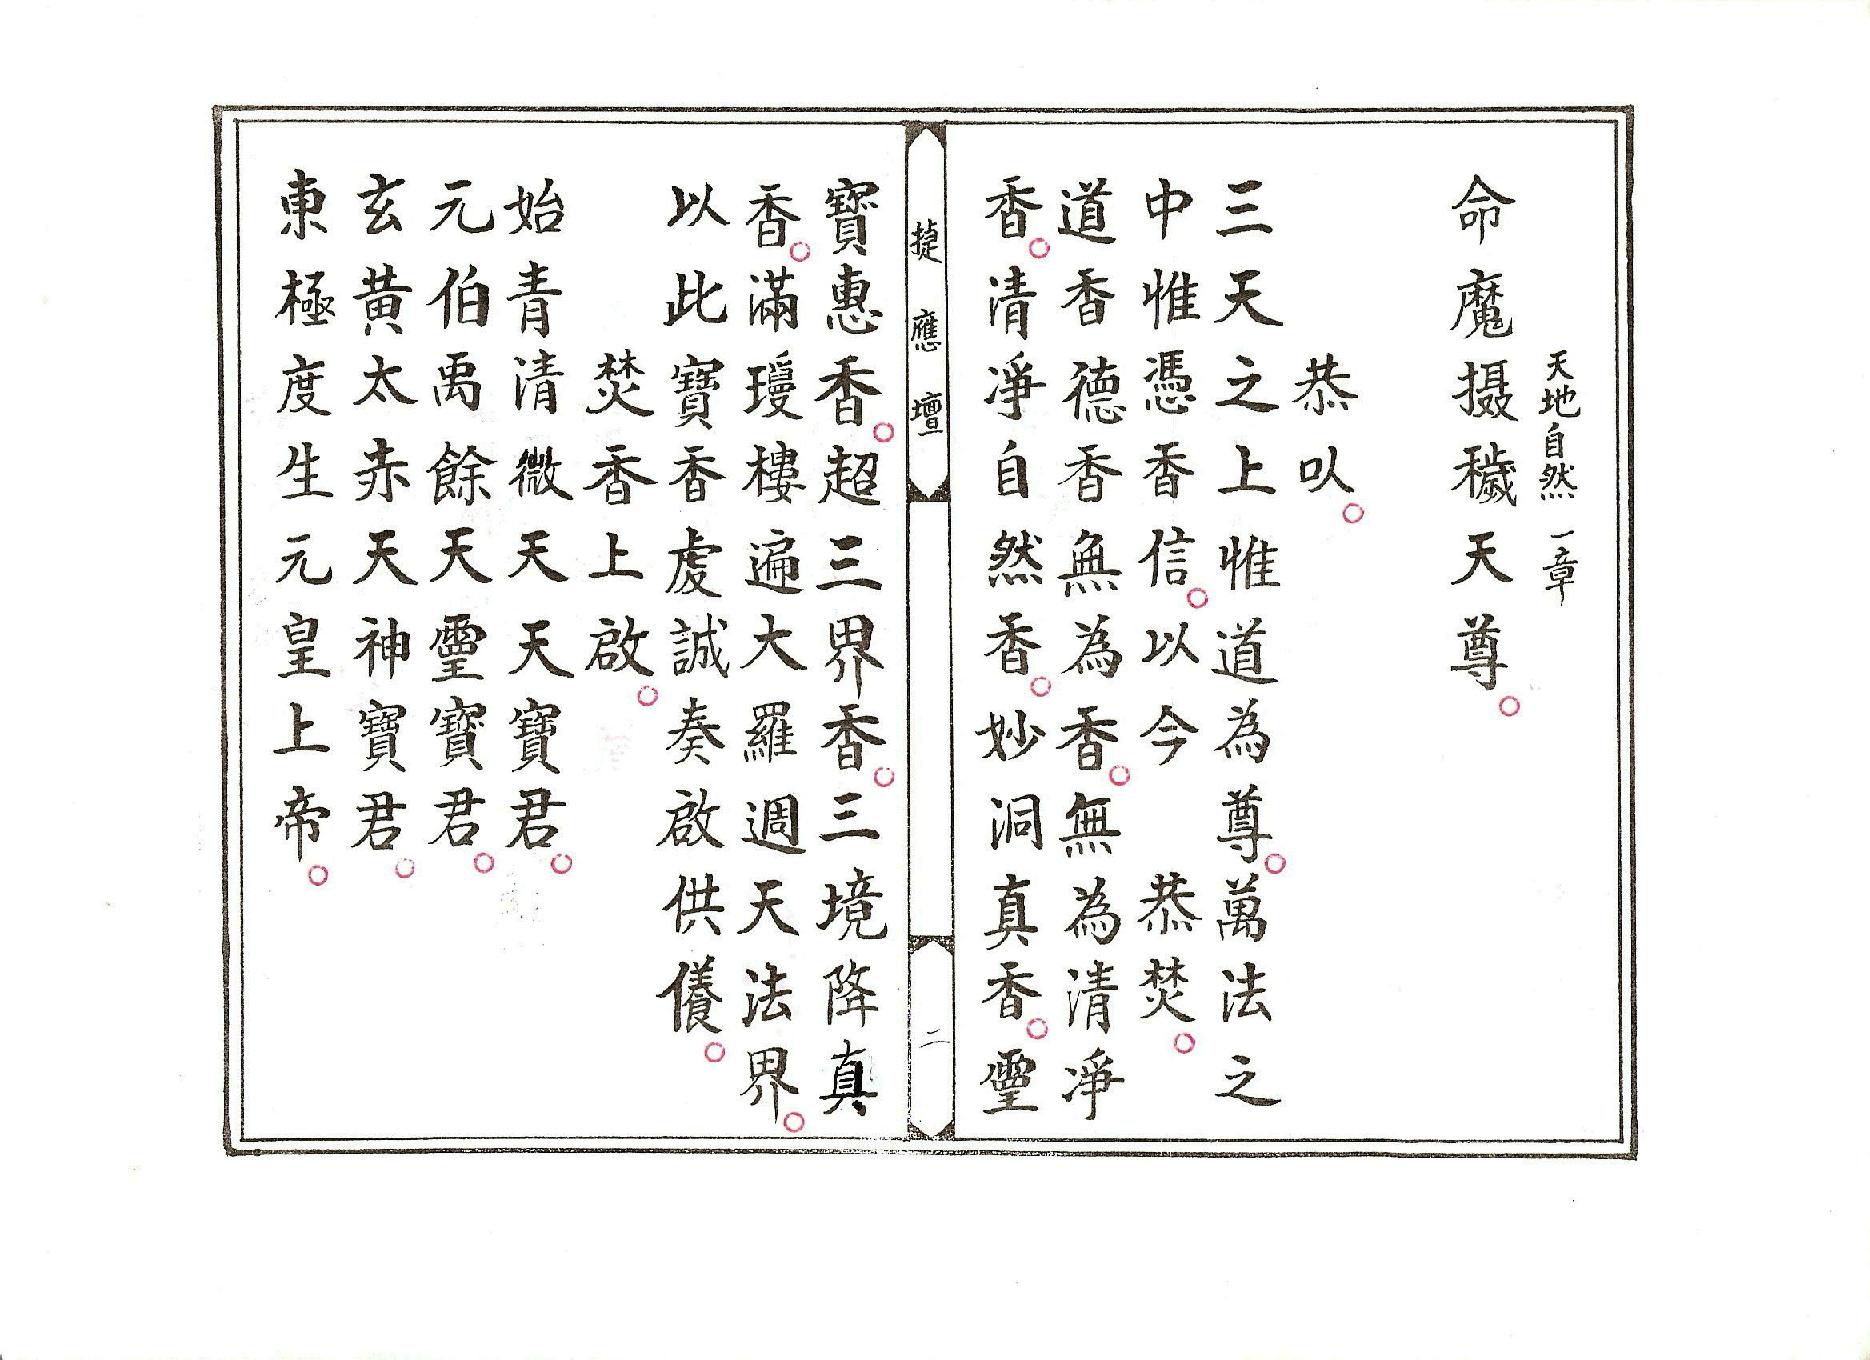 天地自然　一章
命魔摄穢天尊。
恭以。
三天之上惟道為尊。萬法之
中惟憑香信。以今　恭焚。
道香德香無為香。無為清淨
香。清淨自然香。妙洞真香。靈
寶惠香。超三界香。三境降真
香。滿瓊樓遍大羅週天法界。
以此寶香虔誠奏啟供養。
焚香上啟。
始青清微天天寶君。
元伯禹餘天靈寶君。
玄黃太赤天神寶君。
東極度生元皇上帝。
捷應壇
二